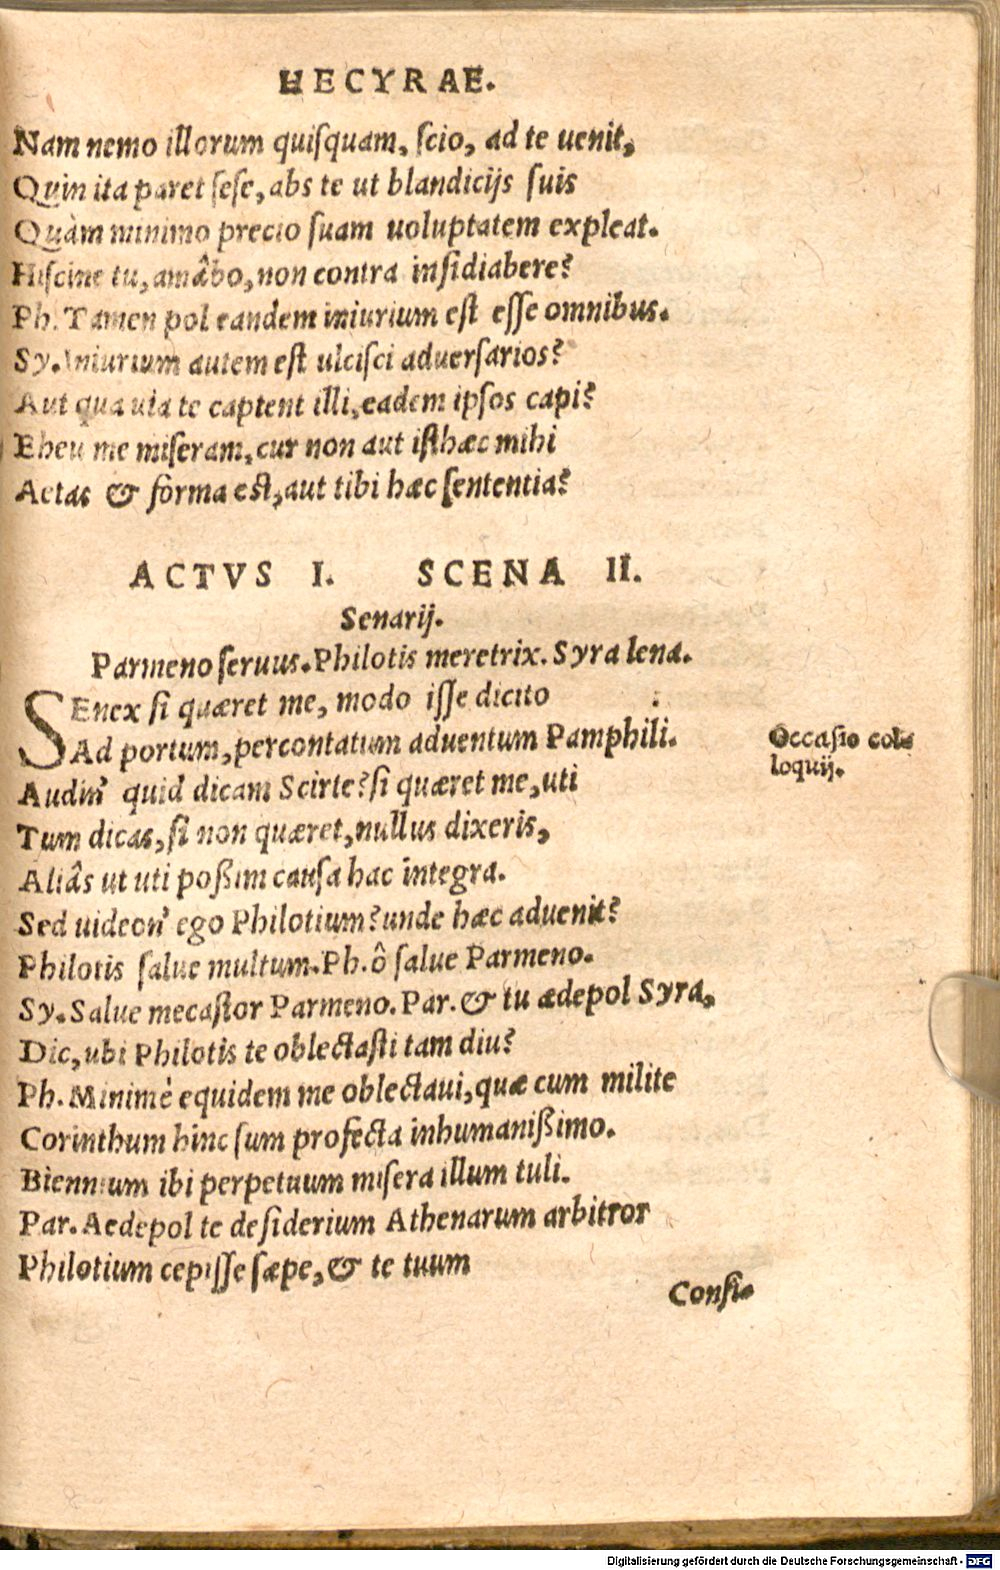 HECYRAE.
Nam nemo illorum quiſquam, ſcio, ad te uenit,
Quin ita paret ſeſe, abs te ut blandicijs ſuis
Quàm minimo precio ſuam uoluptatem expleat.
Hiſcine tu, amâbo, non contra inſidiabere?
Ph. Tamen pol eandem iniurium eſt eſſe omnibus.
Sy. Iniurium autem eſt ulciſci aduerſarios?
Aut qua uia te captent illi, eadem ipſos capi?
Eheu me miſeram, cur non aut iſthæc mihi
Aetas & forma eſt, aut tibi hæc ſententia?
ACTVS I. SCENA II.
Senarij.
Parmeno ſeruus. Philotis meretrix. Syra lena.
SEnex ſi quæret me, modo iſſe dicito
Ad portum, percontatum aduentum Pamphili.
Occaſio col=
loquij.
Audin' quid dicam Scirte? ſi quæret me, uti
Tum dicas, ſi non quæret, nullus dixeris,
Aliâs ut uti poßim cauſa hac integra.
Sed uideon' ego Philotium? unde hæc aduenit?
Philotis ſalue multum. Ph. ô ſalue Parmeno.
Sy. Salue mecaſtor Parmeno. Par. & tu ædepol Syra,
Dic, ubi Philotis te oblectaſti tam diu?
Ph. Minimè equidem me oblectaui, quæ cum milite
Corinthum hinc ſum profecta inhumanißimo.
Biennium ibi perpetuum miſera illum tuli.
Par. Aedepol te deſiderium Athenarum arbitror
Philotium cepiſſe ſæpe, & te tuum
Conſi=
Digitalisierung gefördert durch die Deutsche Forschungsgemeinschaft - DFG